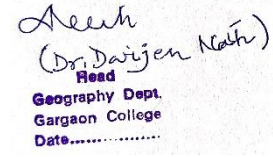 (Dr. Darjen Nath)
Head
Geography Dept.
Gargaon College
Date.................